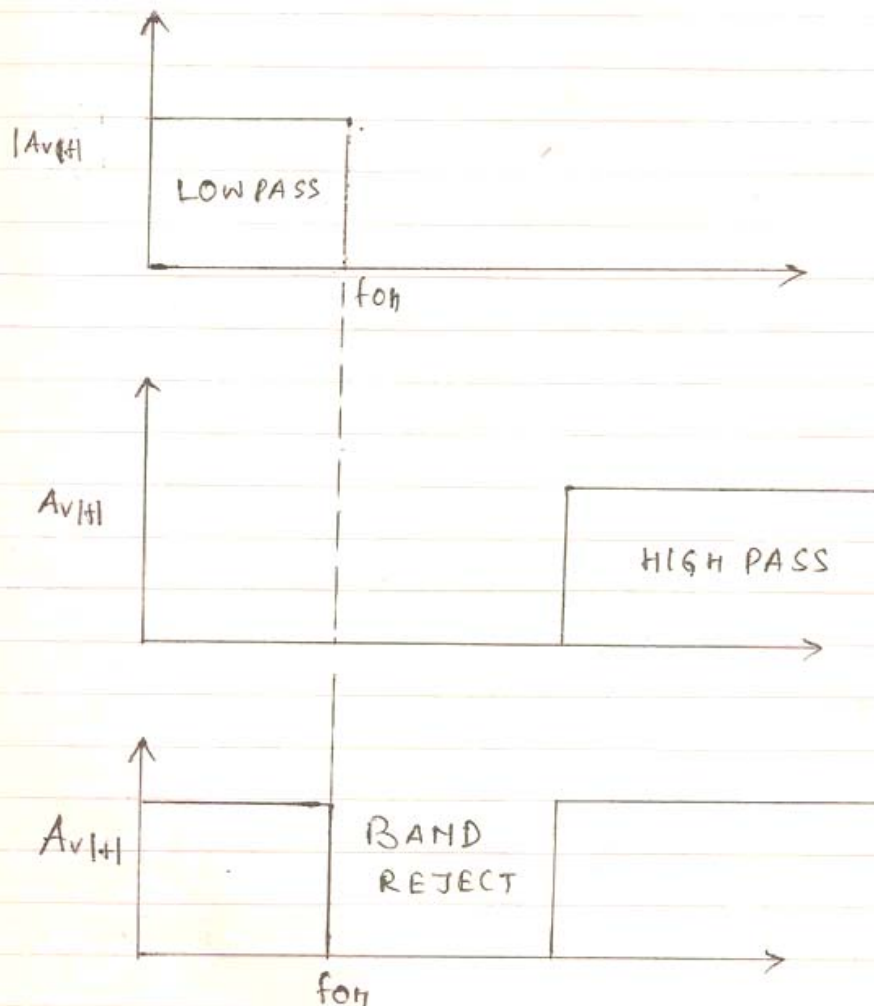 |Av|f|
LOW PASS
foh
Av|f|
HIGH PASS
Av|f|
BAND
REJECT
foh